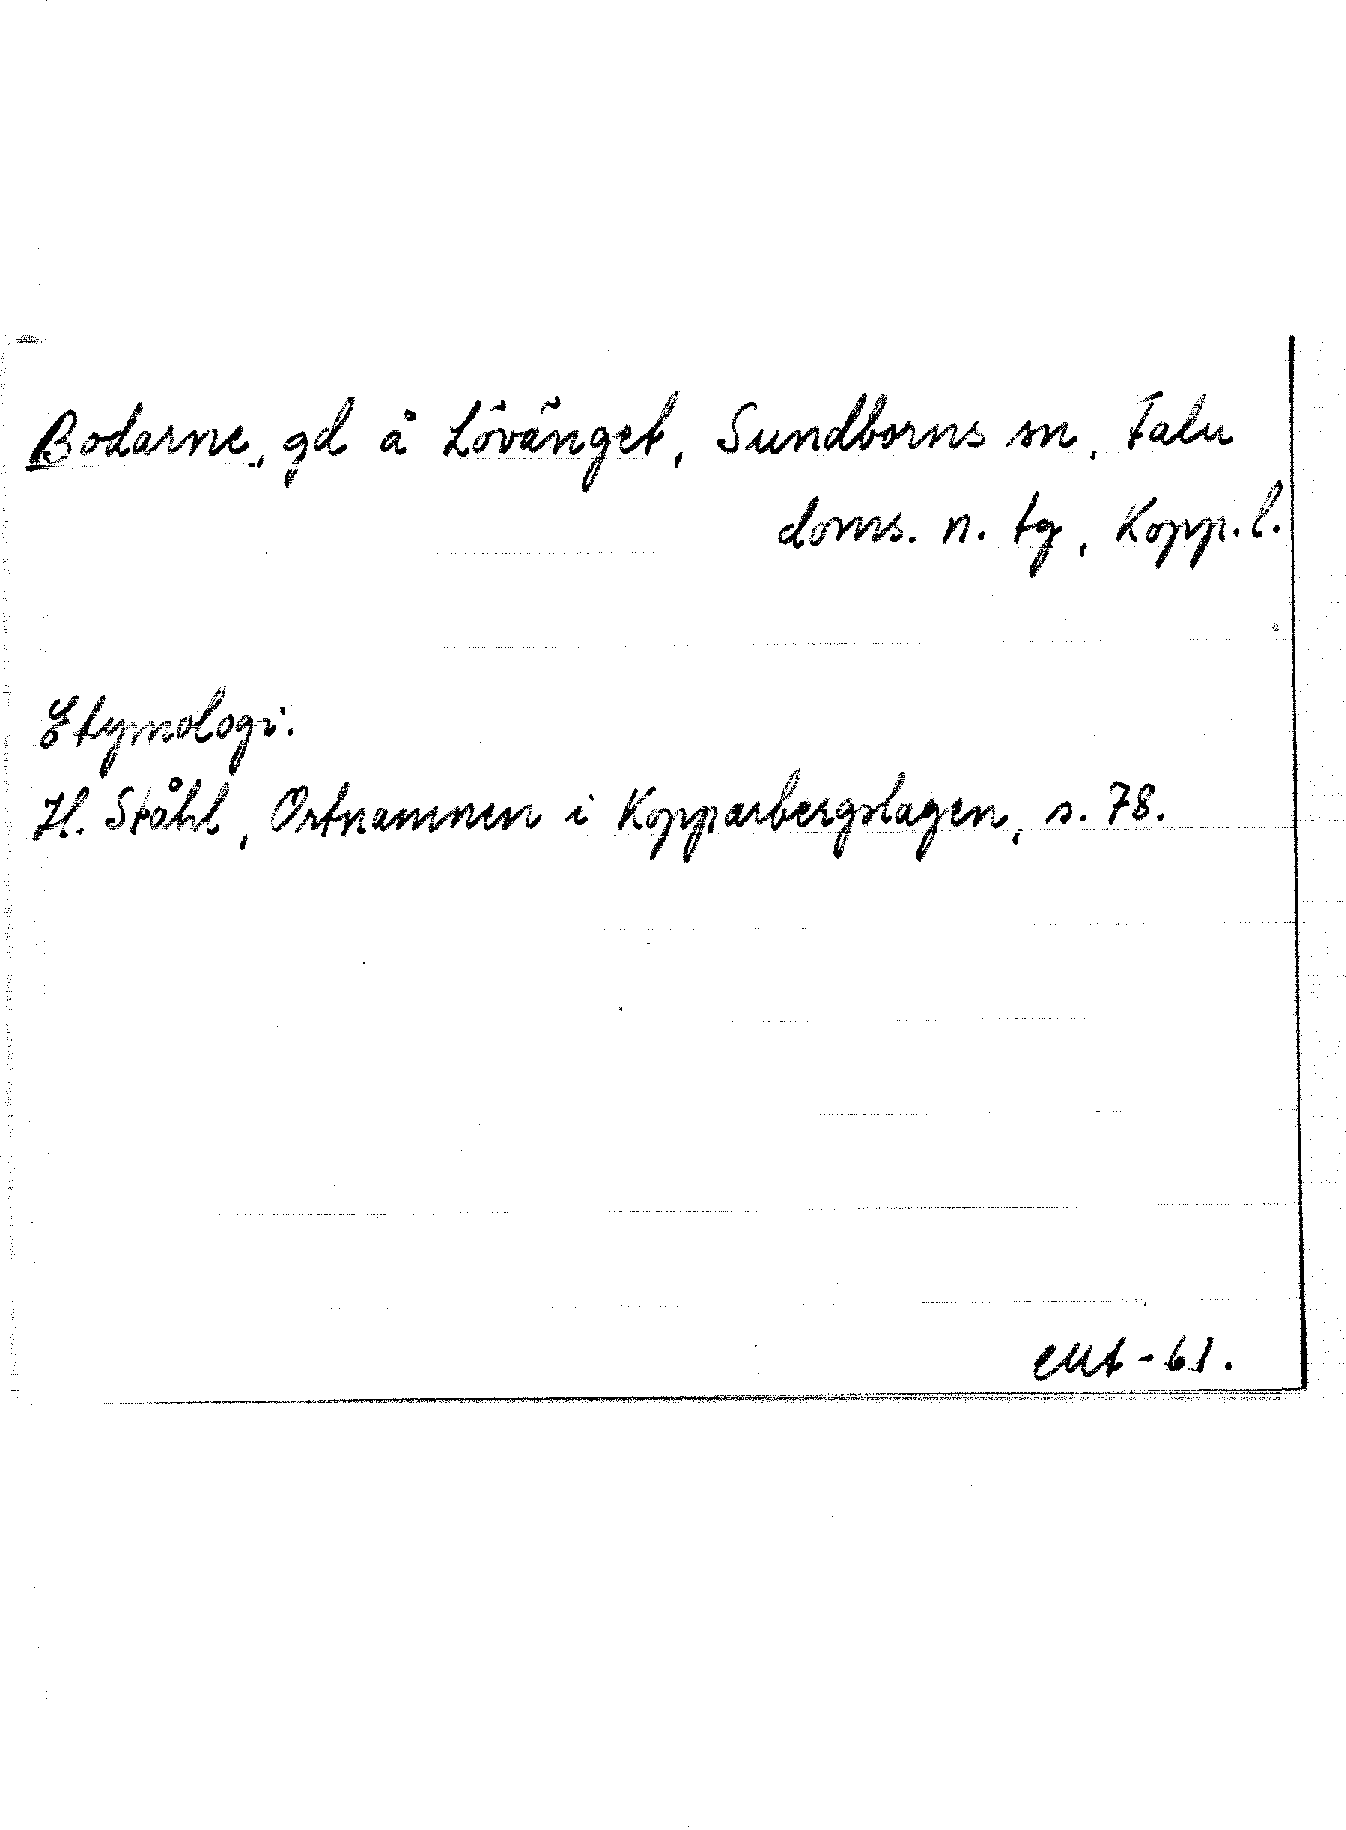 Bodarne, gd å Lövänget, Sundborns sn, Falu
doms. n. tg, Kopp. l.
Etymologi.
H. Ståhl, Ortnamnen i Kopparbergslagen, s. 78.
-61.